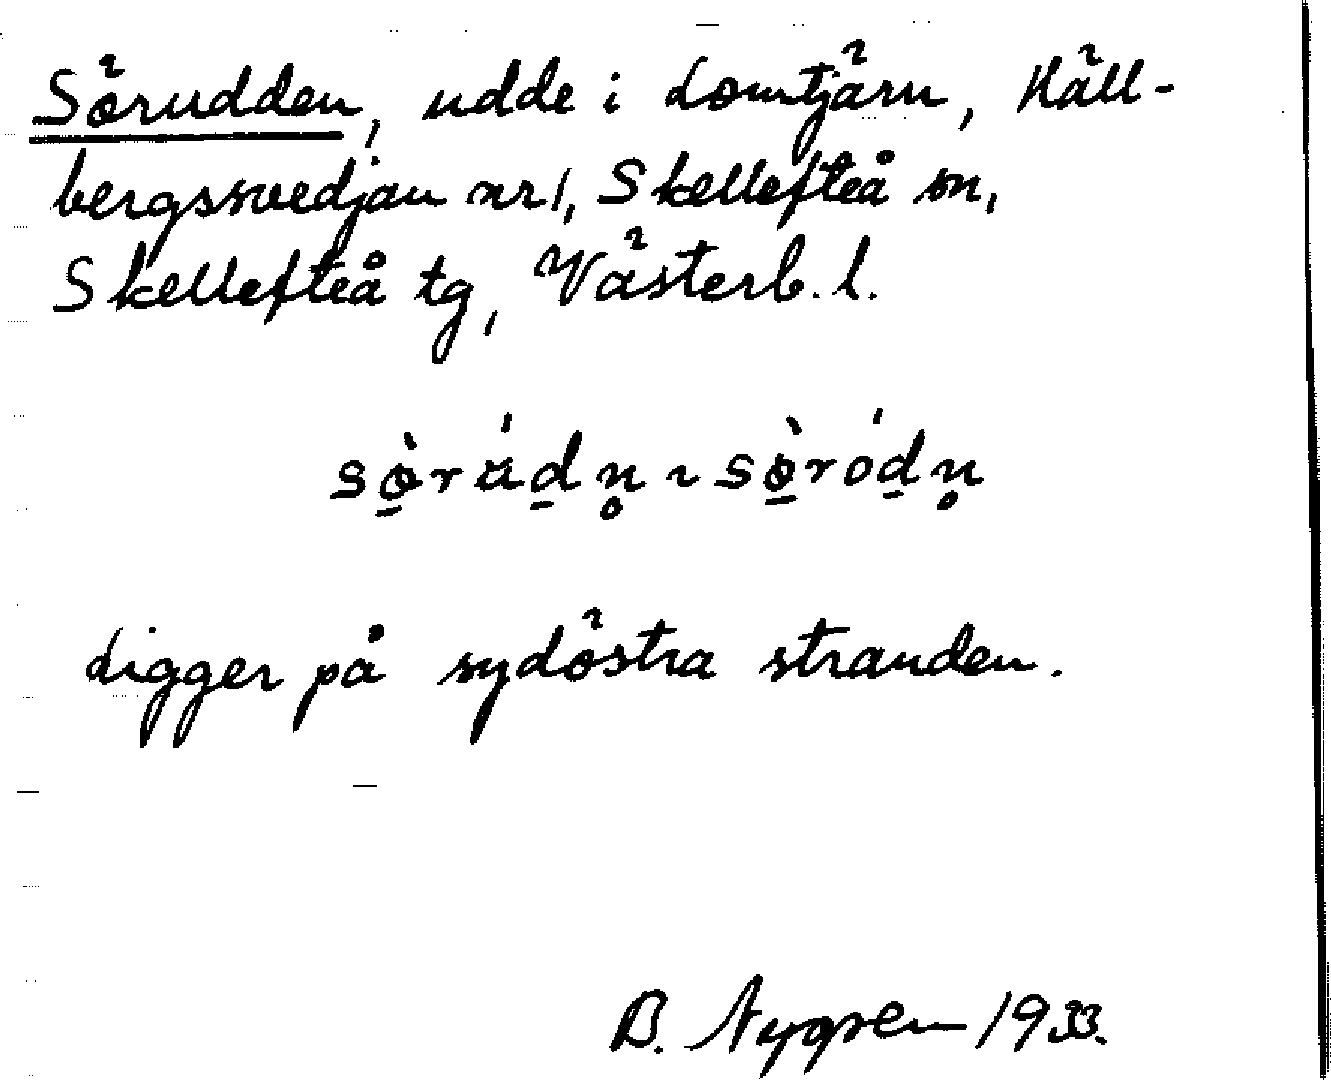 Sörudden, udde i Lomtjärn, Häll-
bergssvedjan nr 1, Skellefteå sn,
Skellefteå tg, Västerb. l.
sø̱̀rʉ́d̠n̥ ~ sø̱̀ród̠n̥
Ligger på sydöstra stranden.
B. Nygren 1933.